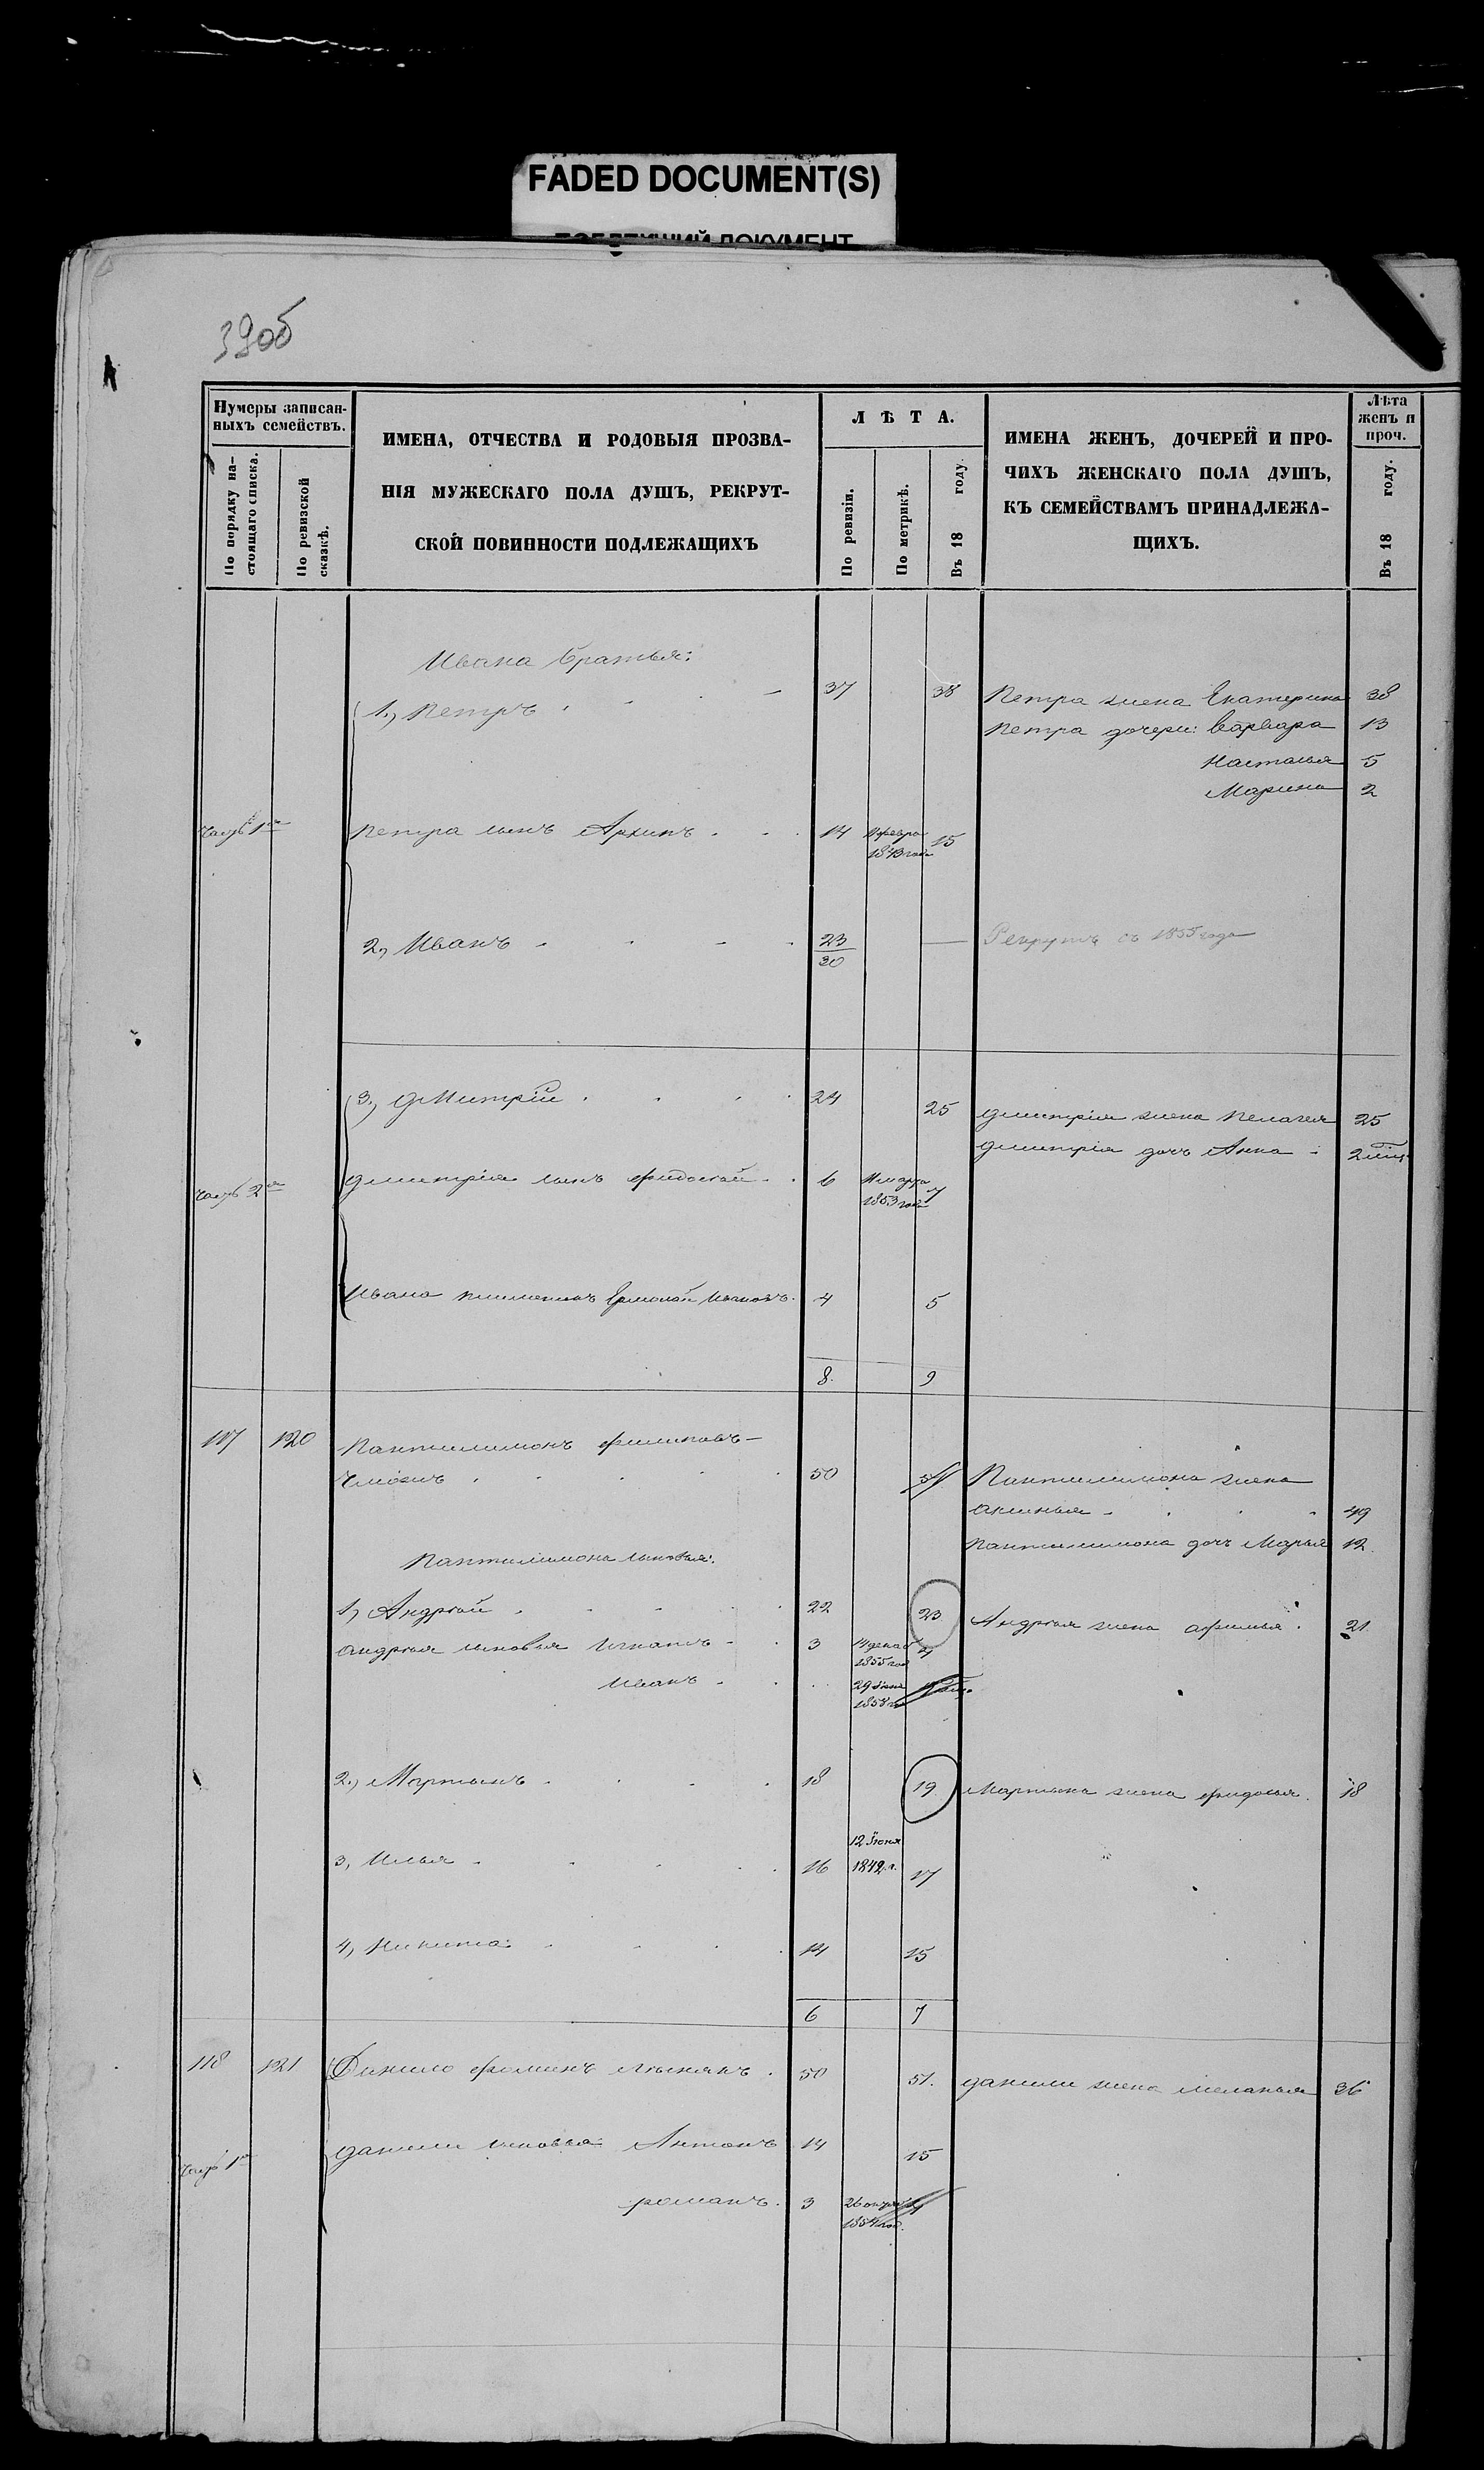 FADED DOCUMENT(S)
39об
Нумеры записан-
ныхъ семействъ.
По порядку на-
стоящаго списка.
По ревизской
сказкѣ.
ИМЕНА, ОТЧЕСТВА И РОДОВЫЯ ПРОЗВА-
НІЯ МУЖЕСКАГО ПОЛА ДУШЪ, РЕКРУТ-
СКОЙ ПОВИННОСТИ ПОДЛЕЖАЩИХЪ
Л Ѣ Т А.
По ревизіи.
По метрикѣ.
Въ 18 году.
ИМЕНА ЖЕНЪ, ДОЧЕРЕЙ И ПРО-
ЧИХЪ ЖЕНСКАГО ПОЛА ДУШЪ,
КЪ СЕМЕЙСТВАМЪ ПРИНАДЛЕЖА-
ЩИХЪ.
Лѣта
женъ и
проч.
Въ 18 году.
Ивана братья:
1., Петръ 37 38 Петра жена Екатерина 38
Петра дочери: Варвара 13
Настасья 5
Марина 2
Часть 1я Петра сынъ Архипъ 14 1843 года 15
2, Иванъ 23 Рекрутъ съ 1855 года
30
3., Дмитрій 24 25 Дмитрія жена Пелагея 25
Дмитрія дочь Анна
Часть 2я Дмитрія сынъ Ѳидосѣй 6 1853 года 7
Ивана племянникъ Ермолай Ивановъ 4 5
8. 9
117 120 Пантилимонъ Филиповъ
50 51 Пантилимона жена
Аксинья 49
Пантилимона дочь Марья 12
Пантилимона сыновья:
1, Андрѣй 22 23 Андрѣя жена Афимья 21.
Андрѣя сыновья Игнатъ 3 14 декаб 4
1855 год
Иванъ 29
2., Мартынъ 18 19 Мартына жена Ѳидосья 18
3, Илья 16 12 Іюня 17
1842 г.
4, Никита 14 15
6 7
118 121 Данило Ѳоминъ 50 51. Данилы жена Меланья 36
Часть 1я Данилы сыновья Антонъ 14 15
Романъ. 3 26
1854 год.